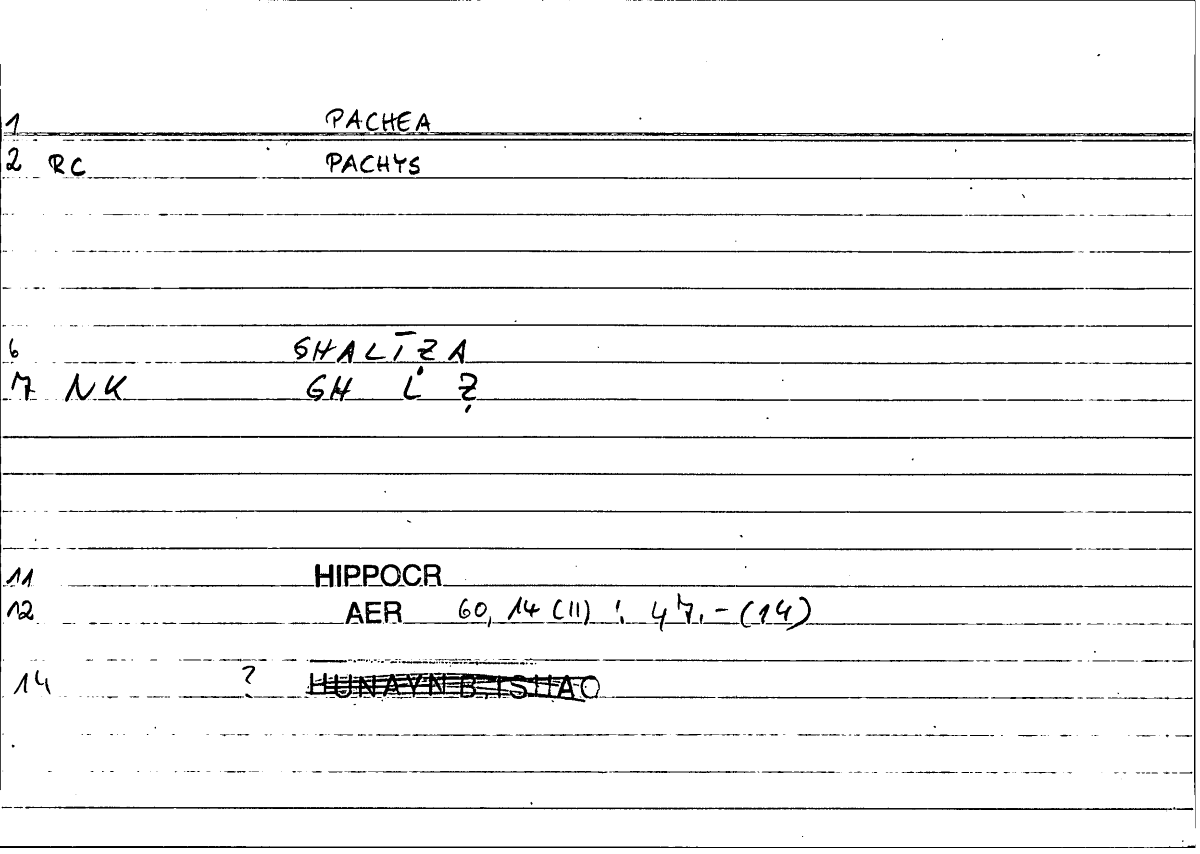 1 PACHEA
2 RC PACHYS
6 GHALĪẒA
7 NK GH L Ẓ
11 HIPPOCR
12 AER 60, 14 (11) : 47.- (14)
14 ? HUNAYN B. ISHAQ